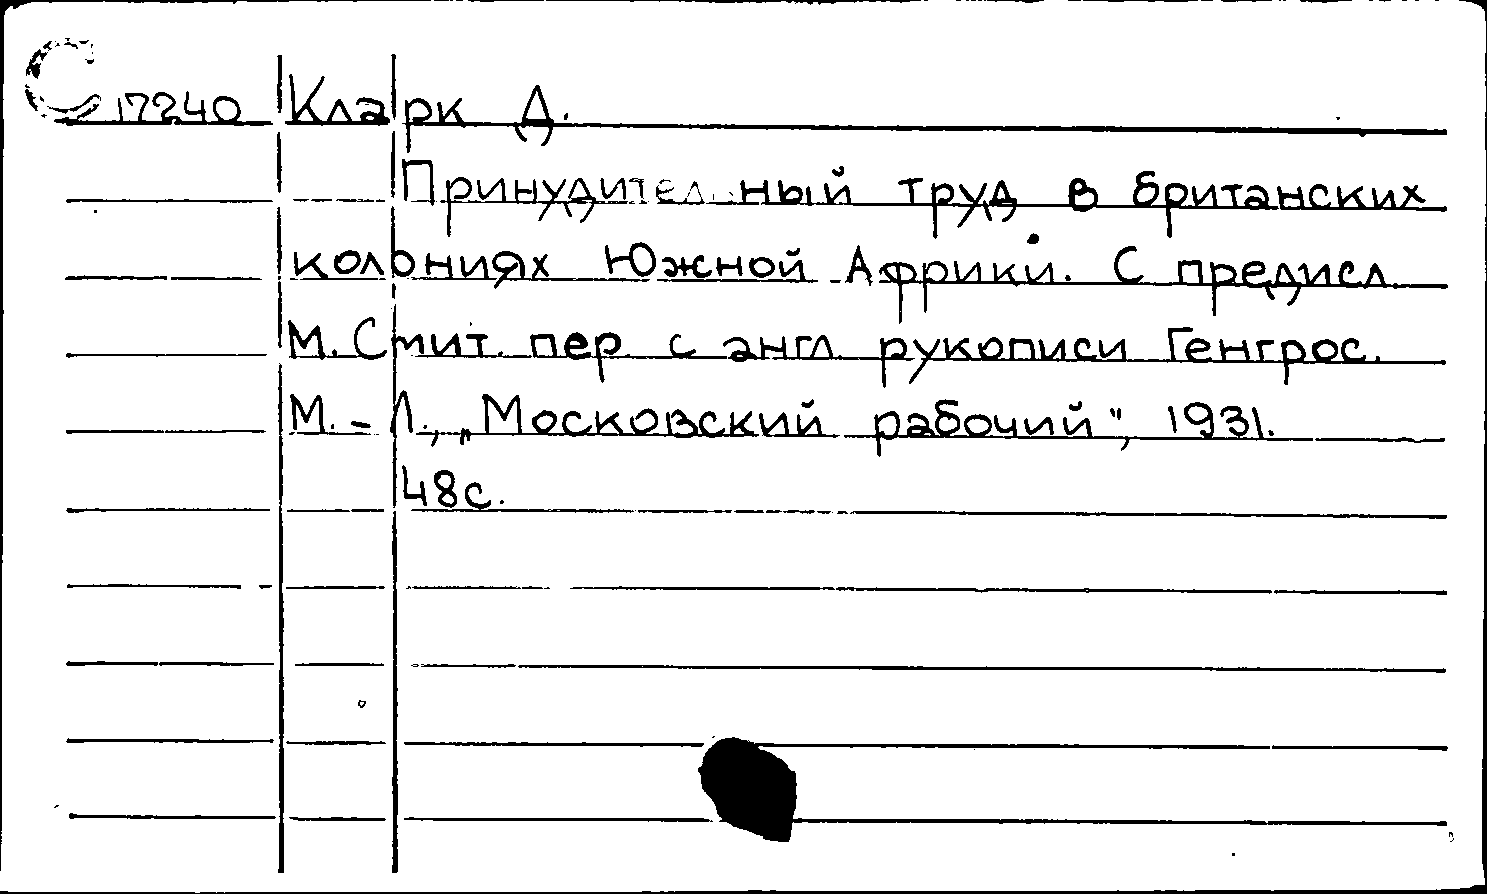 С 17240 Кларк Д.
Принудительный труд в британских
колониях Южной Африки. С предисл.
М. Смит. пер. с англ. рукописи Генгрос.
М. - Л., „Московский рабочий", 1931.
48с.